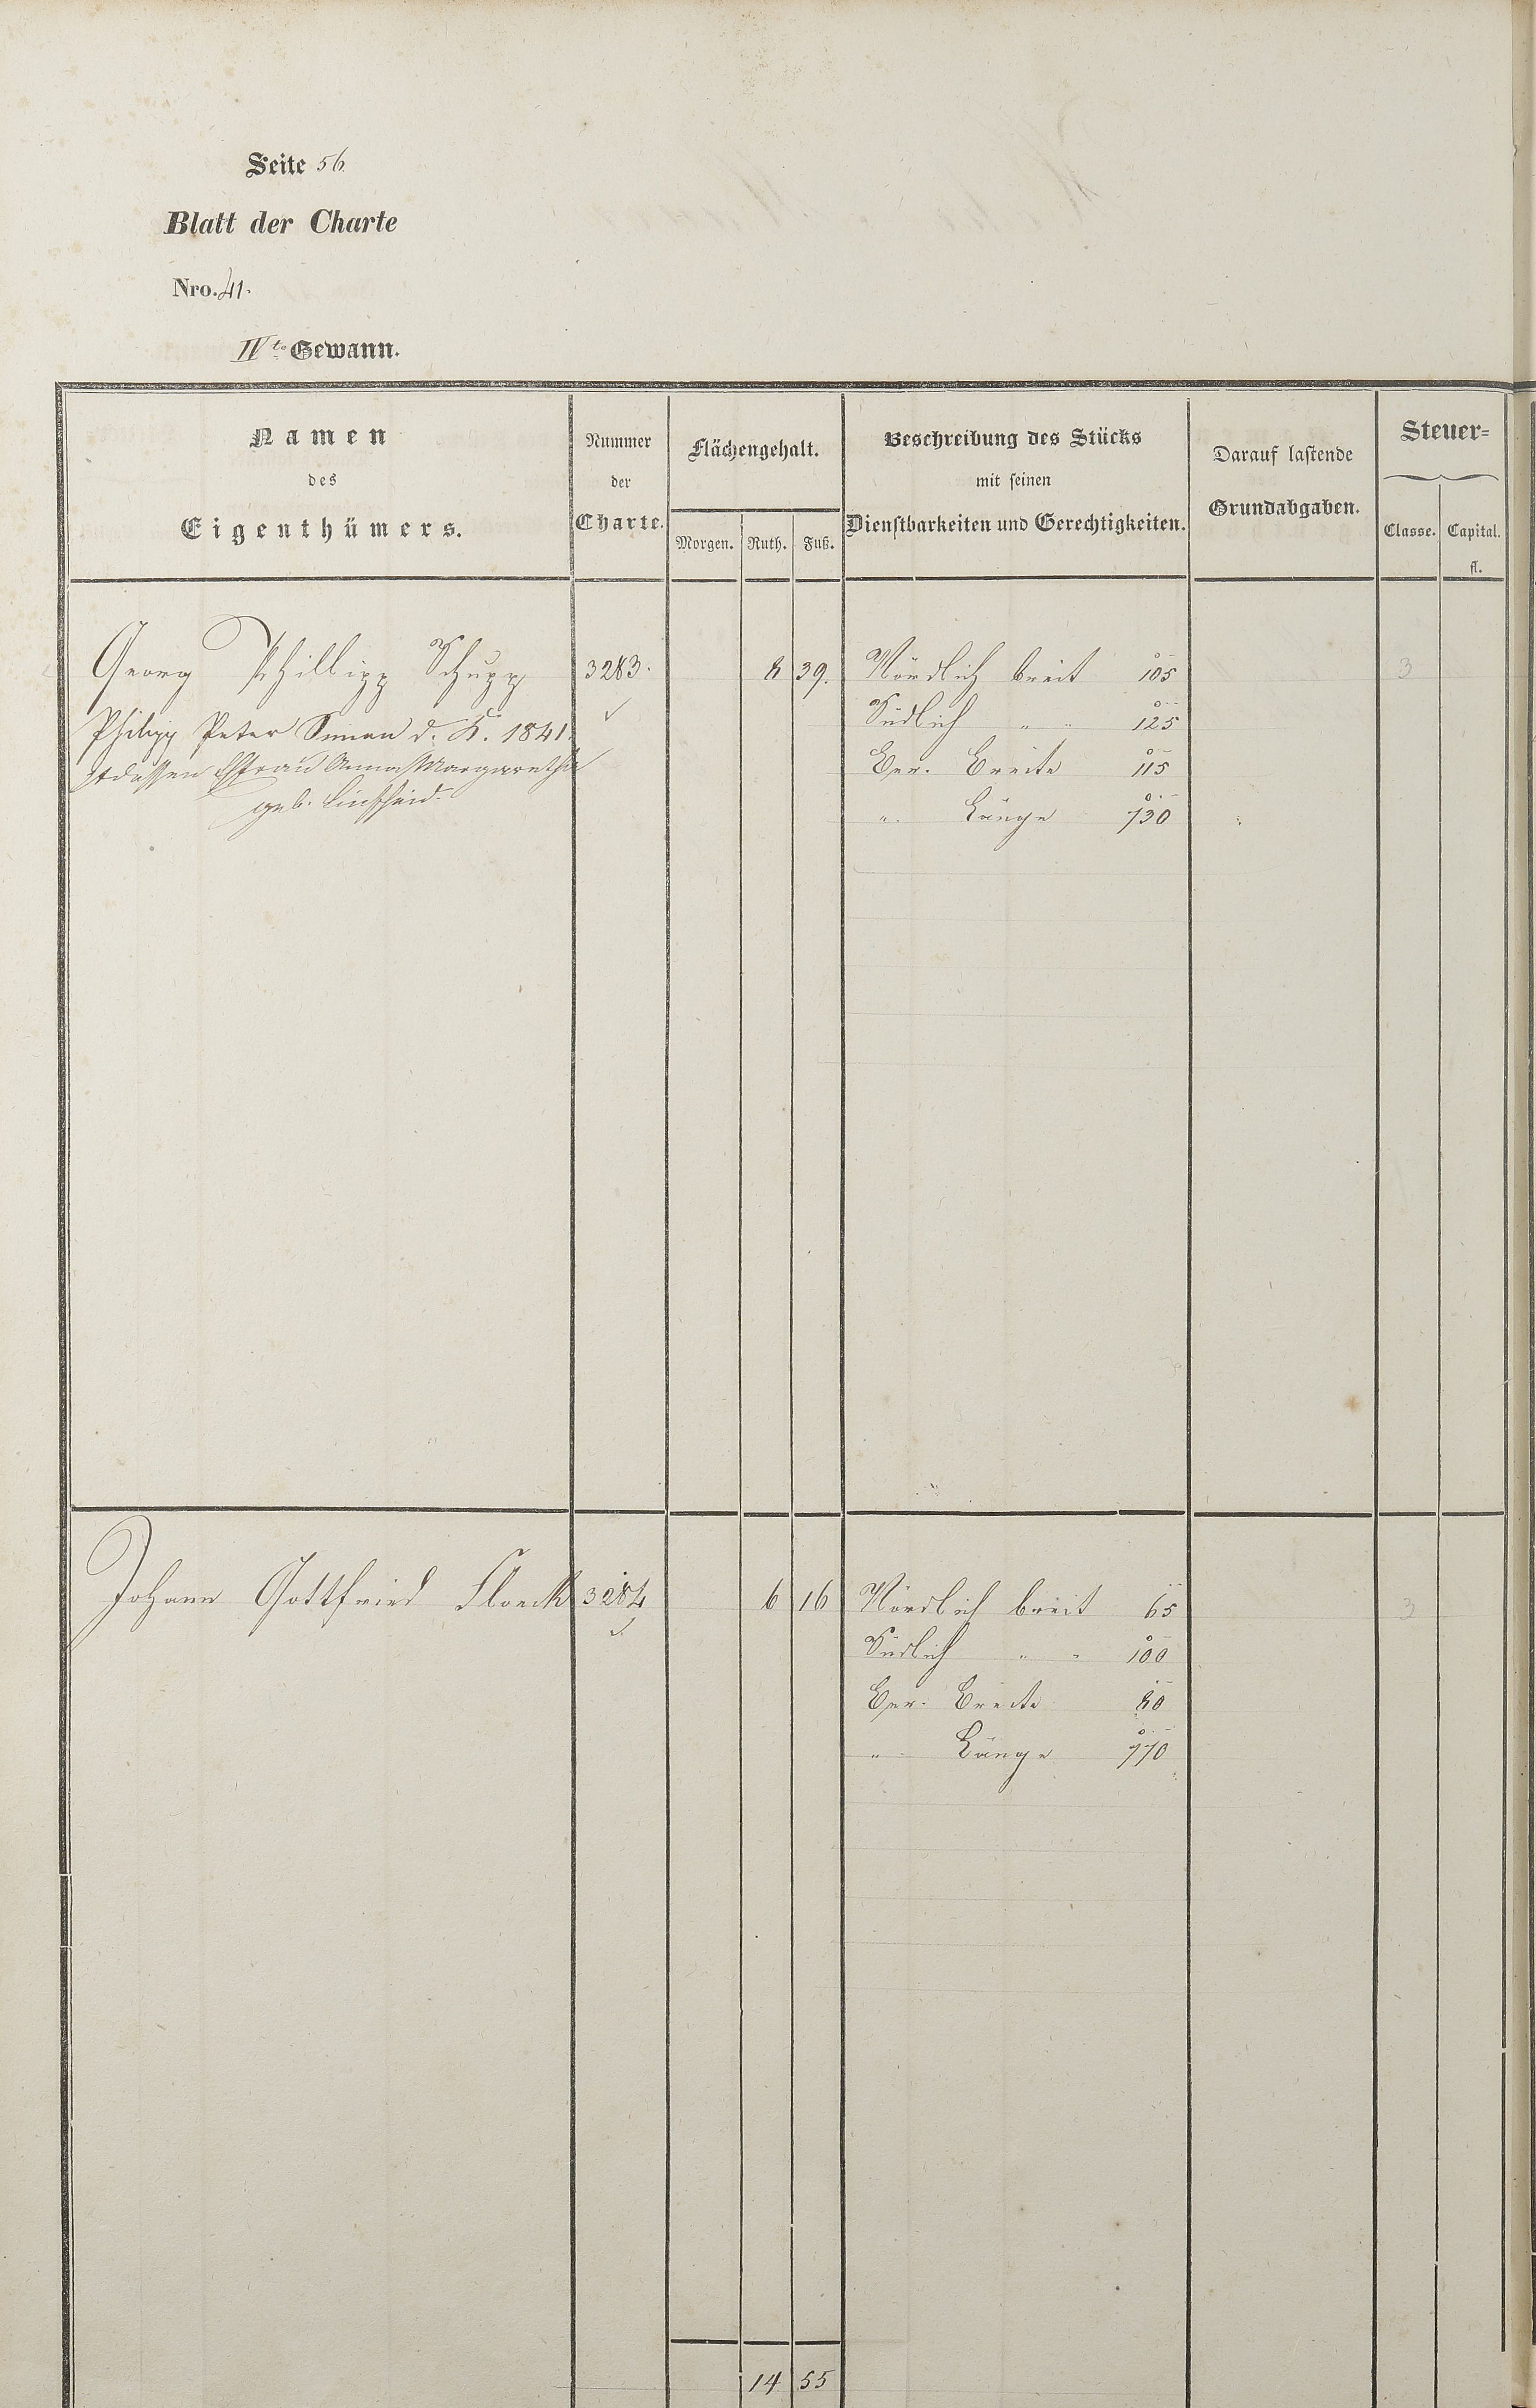 Seite 56
Blatt der Charte
Nro. 41.
IVte Gewann.
Namen des Eigenthümers.
Nummer der Charte.
Flächengehalt.
Morgen. Ruth. Fuß.
Beschreibung des Stücks mit seinen Dienstbarkeiten und Gerechtigkeiten.
Darauf lastende Grundabgaben.
Steuer=
Classe. Capital. fl.
Georg Phillipp Schupp 3283. 8 39. Nördlich breit 105 3
Philipp Peter Simon d. K. 1841. Südlich " " 125
dessen Ehfrau Anna Margaretha Ver. Breite 115
geb. " Länge 730
Johann Gottfried Floeck 3284 6 16 Nördlich breit 65 3
Südlich " " 100
Ver. Breite 80
" Länge 770
14 55